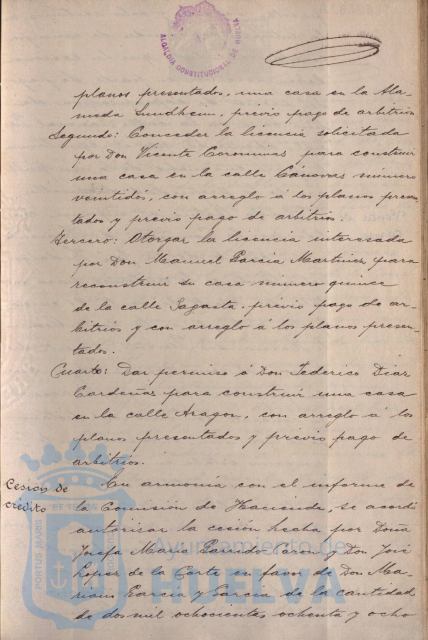 ALCALDIA CONSTITUCIONAL DE HUELVA
planos presentados, una casa en la Ala-
meda Sundheim, previo pago de arbitrios
Segundo: Conceder la licencia solicitada
por Don Vicente Corominas para construir
una casa en la calle Cánovas número
veintidos, con arreglo á los planos presen
tados y previo pago de arbitrios.
Tercero: Otorgar la licencia interesada
por Don Manuel Garcia Martinez para
reconstruir su casa número quince
de la calle Sagasta, previo pago de ar-
bitrios y con arreglo á los planos presen-
tados.
Cuarto: Dar permiso á Don Federico Diaz
Cardenas para construir una casa
en la calle Aragon, con arreglo á los
planos presentados y previo pago de
arbitrios.
Cesion de
crédito
En armonia con el informe de
la Comision de Hacienda, se acordó
autorizar la cesión hecha por Doña
Josefa Maria Garrido y Don José
Lopez de la Corte en favor de Don Ma-
riano Garcia y Garcia de la cantidad
de dos mil ochocientas ochenta y ocho
PORTUS MARIS
Ayuntamiento de
HUELVA